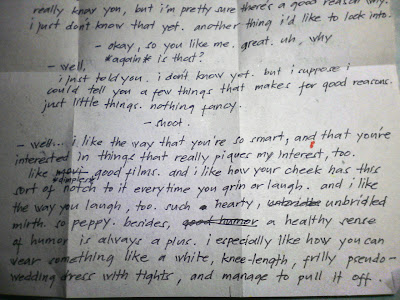 really know you, but i'm pretty sure there's a good reason why.
i just don't know that yet. another thing i'd like to look into.
- okay, so you like me. great. uh, why
*again* is that?
- well,
i just told you. i don't know yet. but i suppose i
could tell you a few things that makes for good reasons.
just little things. nothing fancy.
- shoot.
- well... i like the way that you're so smart, and that you're
interested in things that really piques my interest, too.
like good films. and i like how your cheek has this
sort of notch to it everytime you grin or laugh. and i like
the way you laugh, too. such a hearty, unbridled
mirth. so peppy. besides, good humor a healthy sense
of humor is always a plus. i especially like how you can
wear something like a white, knee-length, frilly pseudo-
wedding dress with tights, and manage to pull it off.